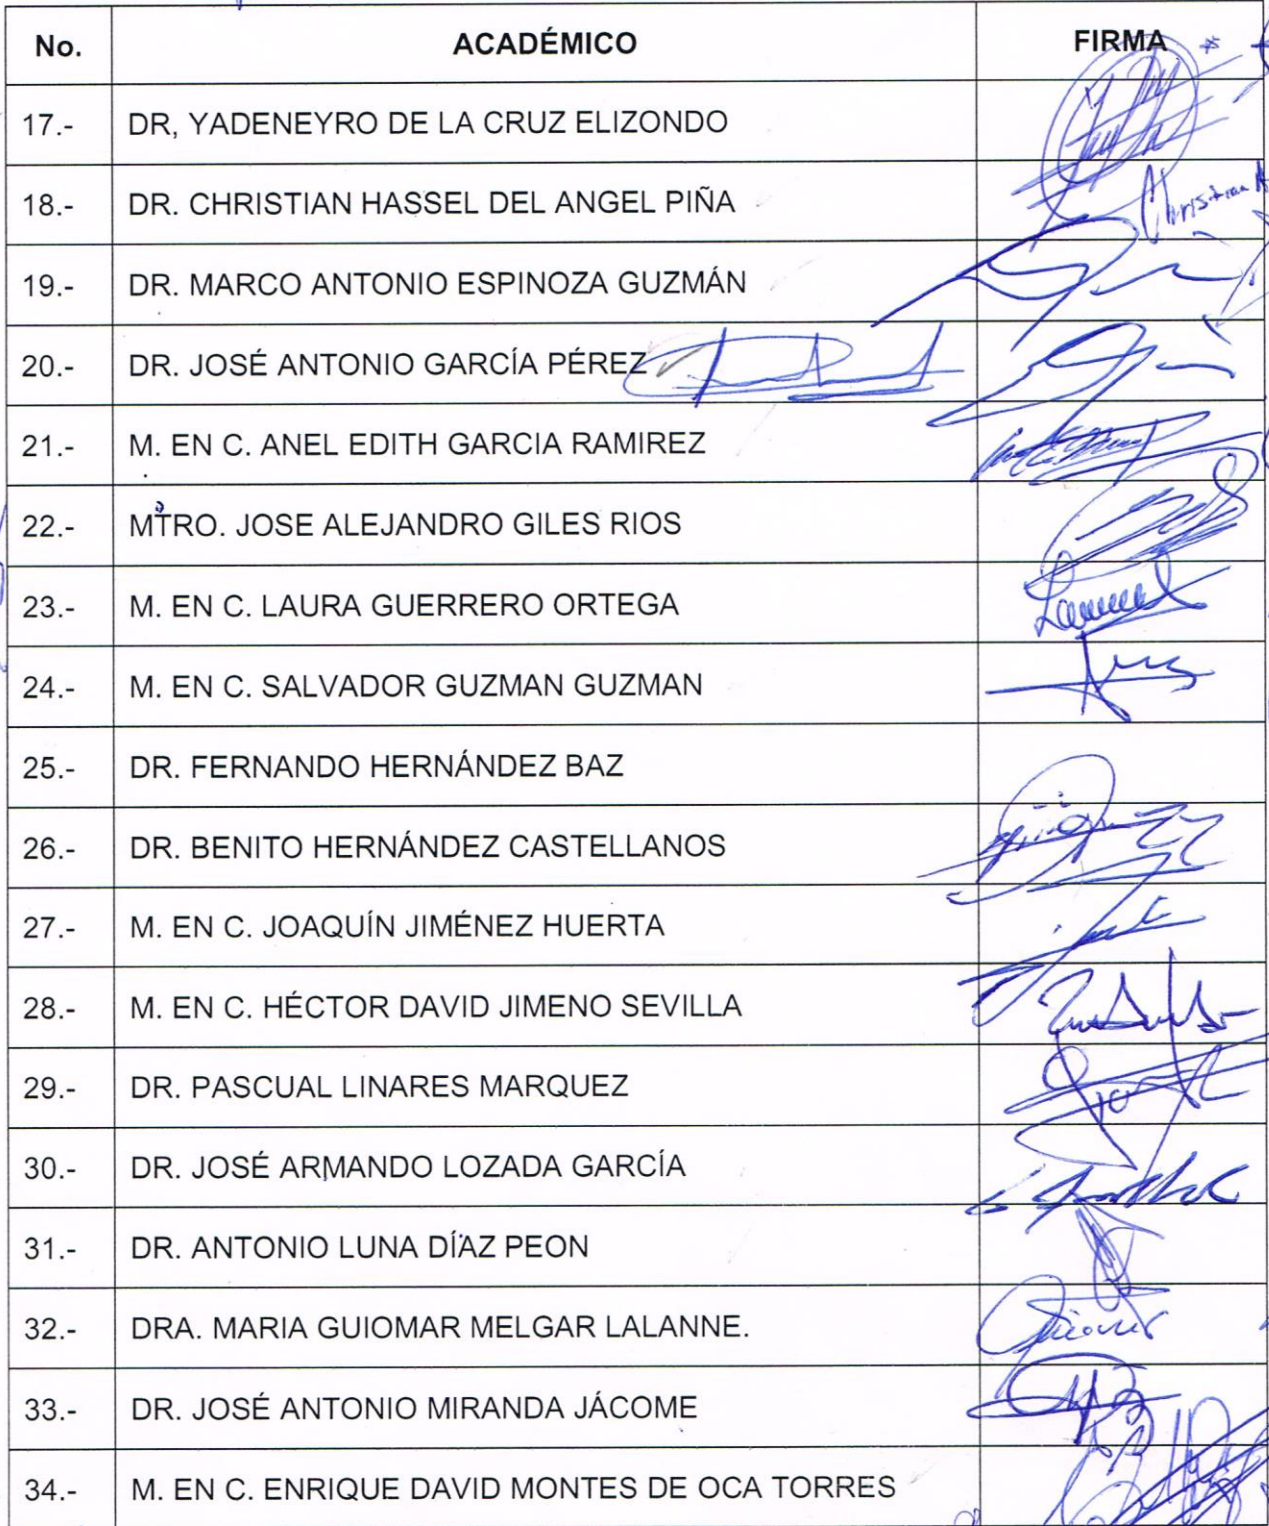 No. ACADÉMICO FIRMA
17.- DR, YADENEYRO DE LA CRUZ ELIZONDO
18.- DR. CHRISTIAN HASSEL DEL ANGEL PIÑA Christian A
19.- DR. MARCO ANTONIO ESPINOZA GUZMÁN
20.- DR. JOSÉ ANTONIO GARCÍA PÉREZ
21.- M. EN C. ANEL EDITH GARCIA RAMIREZ
22.- MTRO. JOSE ALEJANDRO GILES RIOS
23.- M. EN C. LAURA GUERRERO ORTEGA
24.- M. EN C. SALVADOR GUZMAN GUZMAN
25.- DR. FERNANDO HERNÁNDEZ BAZ
26.- DR. BENITO HERNÁNDEZ CASTELLANOS
27.- M. EN C. JOAQUÍN JIMÉNEZ HUERTA
28.- M. EN C. HÉCTOR DAVID JIMENO SEVILLA
29.- DR. PASCUAL LINARES MARQUEZ
30.- DR. JOSÉ ARMANDO LOZADA GARCÍA
31.- DR. ANTONIO LUNA DÍAZ PEON
32.- DRA. MARIA GUIOMAR MELGAR LALANNE.
33.- DR. JOSÉ ANTONIO MIRANDA JÁCOME
34.- M. EN C. ENRIQUE DAVID MONTES DE OCA TORRES